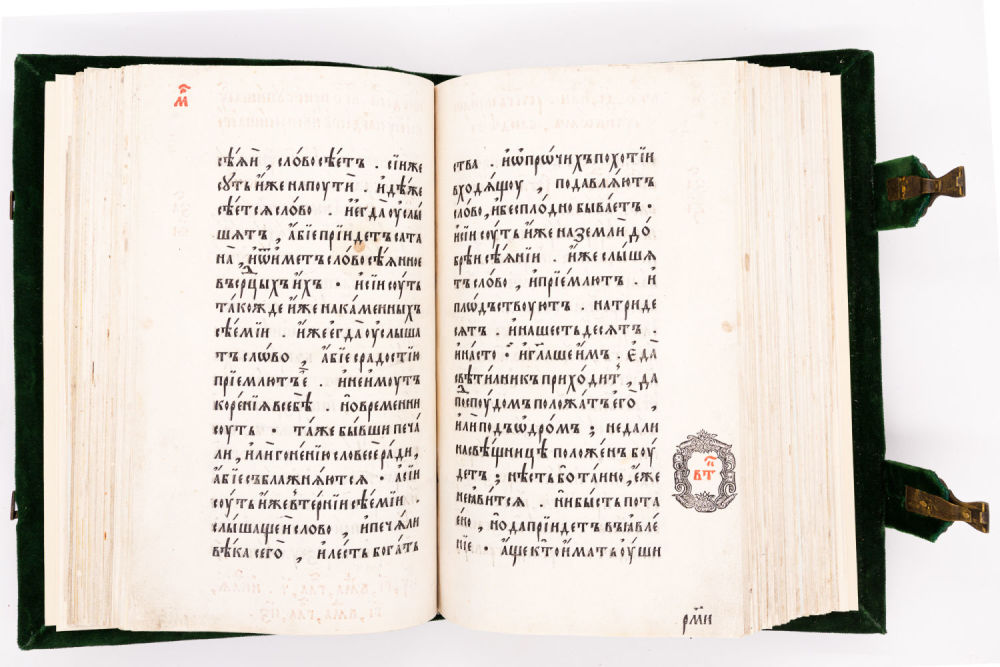 м҃
сѣ́ѧй , сло́во сѣ́етъ . сїи́ же
сꙋ́ть и҆́же на поути̑ . и҆дѣ́же
сѣ́етсѧ сло́во . и҆ е҆гда̀ оу҆слы́
шатъ , а҆́бїе прїи́детъ сата
на̀ , и҆ ѿи́метъ сло́во сѣ́ѧнное
въ срⷣцыхъ и҆́хъ . и҆ сїи́ соу́ть
та́кожде и҆́же на ка́менныхъ
сѣ́емїи . и҆́же е҆гда̀ оу҆слы́ша
тъ сло́во , а҆́бїе с ра́достїю
прїе́млютъ е҆̀ . и҆ не и҆́моутъ
коре́нїѧ в себѣ̀ . но̀ вре́менни
соу́ть . та́же бы́вши печа́
ли , и҆лѝ гоне́нїю словесѐ ра́ди ,
а҆́бїе съблажнѧ́ютсѧ . а҆ сїи́
соу́ть и҆́же в те́рнїи сѣ́емїи .
слы́шащеи сло́во , и҆ печа́ли
вѣ́ка сего̀ , и҆ ле́сть бога́тъ
ства . и҆ ѡ҆ про́чихъ по́хоти
входѧ́щоу , подавлѧ́ютъ
сло́во , и҆ беспло́дно быва́етъ .
и҆ сїи́ соу́ть и҆́же на землѝ до́
брѣи сѣ́ѧнїи . и҆́же слы́шѧ
тъ сло́во , и҆ прїе́млютъ . и҆
пло́дъствоуютъ . на три́де
сѧтъ . и҆ на ше́стьдесѧтъ .
и҆ на́ сто . и҆ гл҃аше и҆̀мъ . Е҆да̀
свѣти́лникъ прихо́дит , да
поⷣ споу́домъ положа́тъ е҆го̀ ,
и҆лѝ подъ ѡ҆дро́мъ ; не да́ли
на свѣ́щницѣ поло́женъ боу́
детъ ; нѣ́сть бо та́йно , е҆́же
не ꙗ҆ви́тсѧ . ни бы́сть пота
е҆но̀ , но̀ да прїи́детъ въ ꙗ҆вле́
нїе . а҆́ще кто̀ и҆́мать оу҆́ши
вт҃
рм҃и